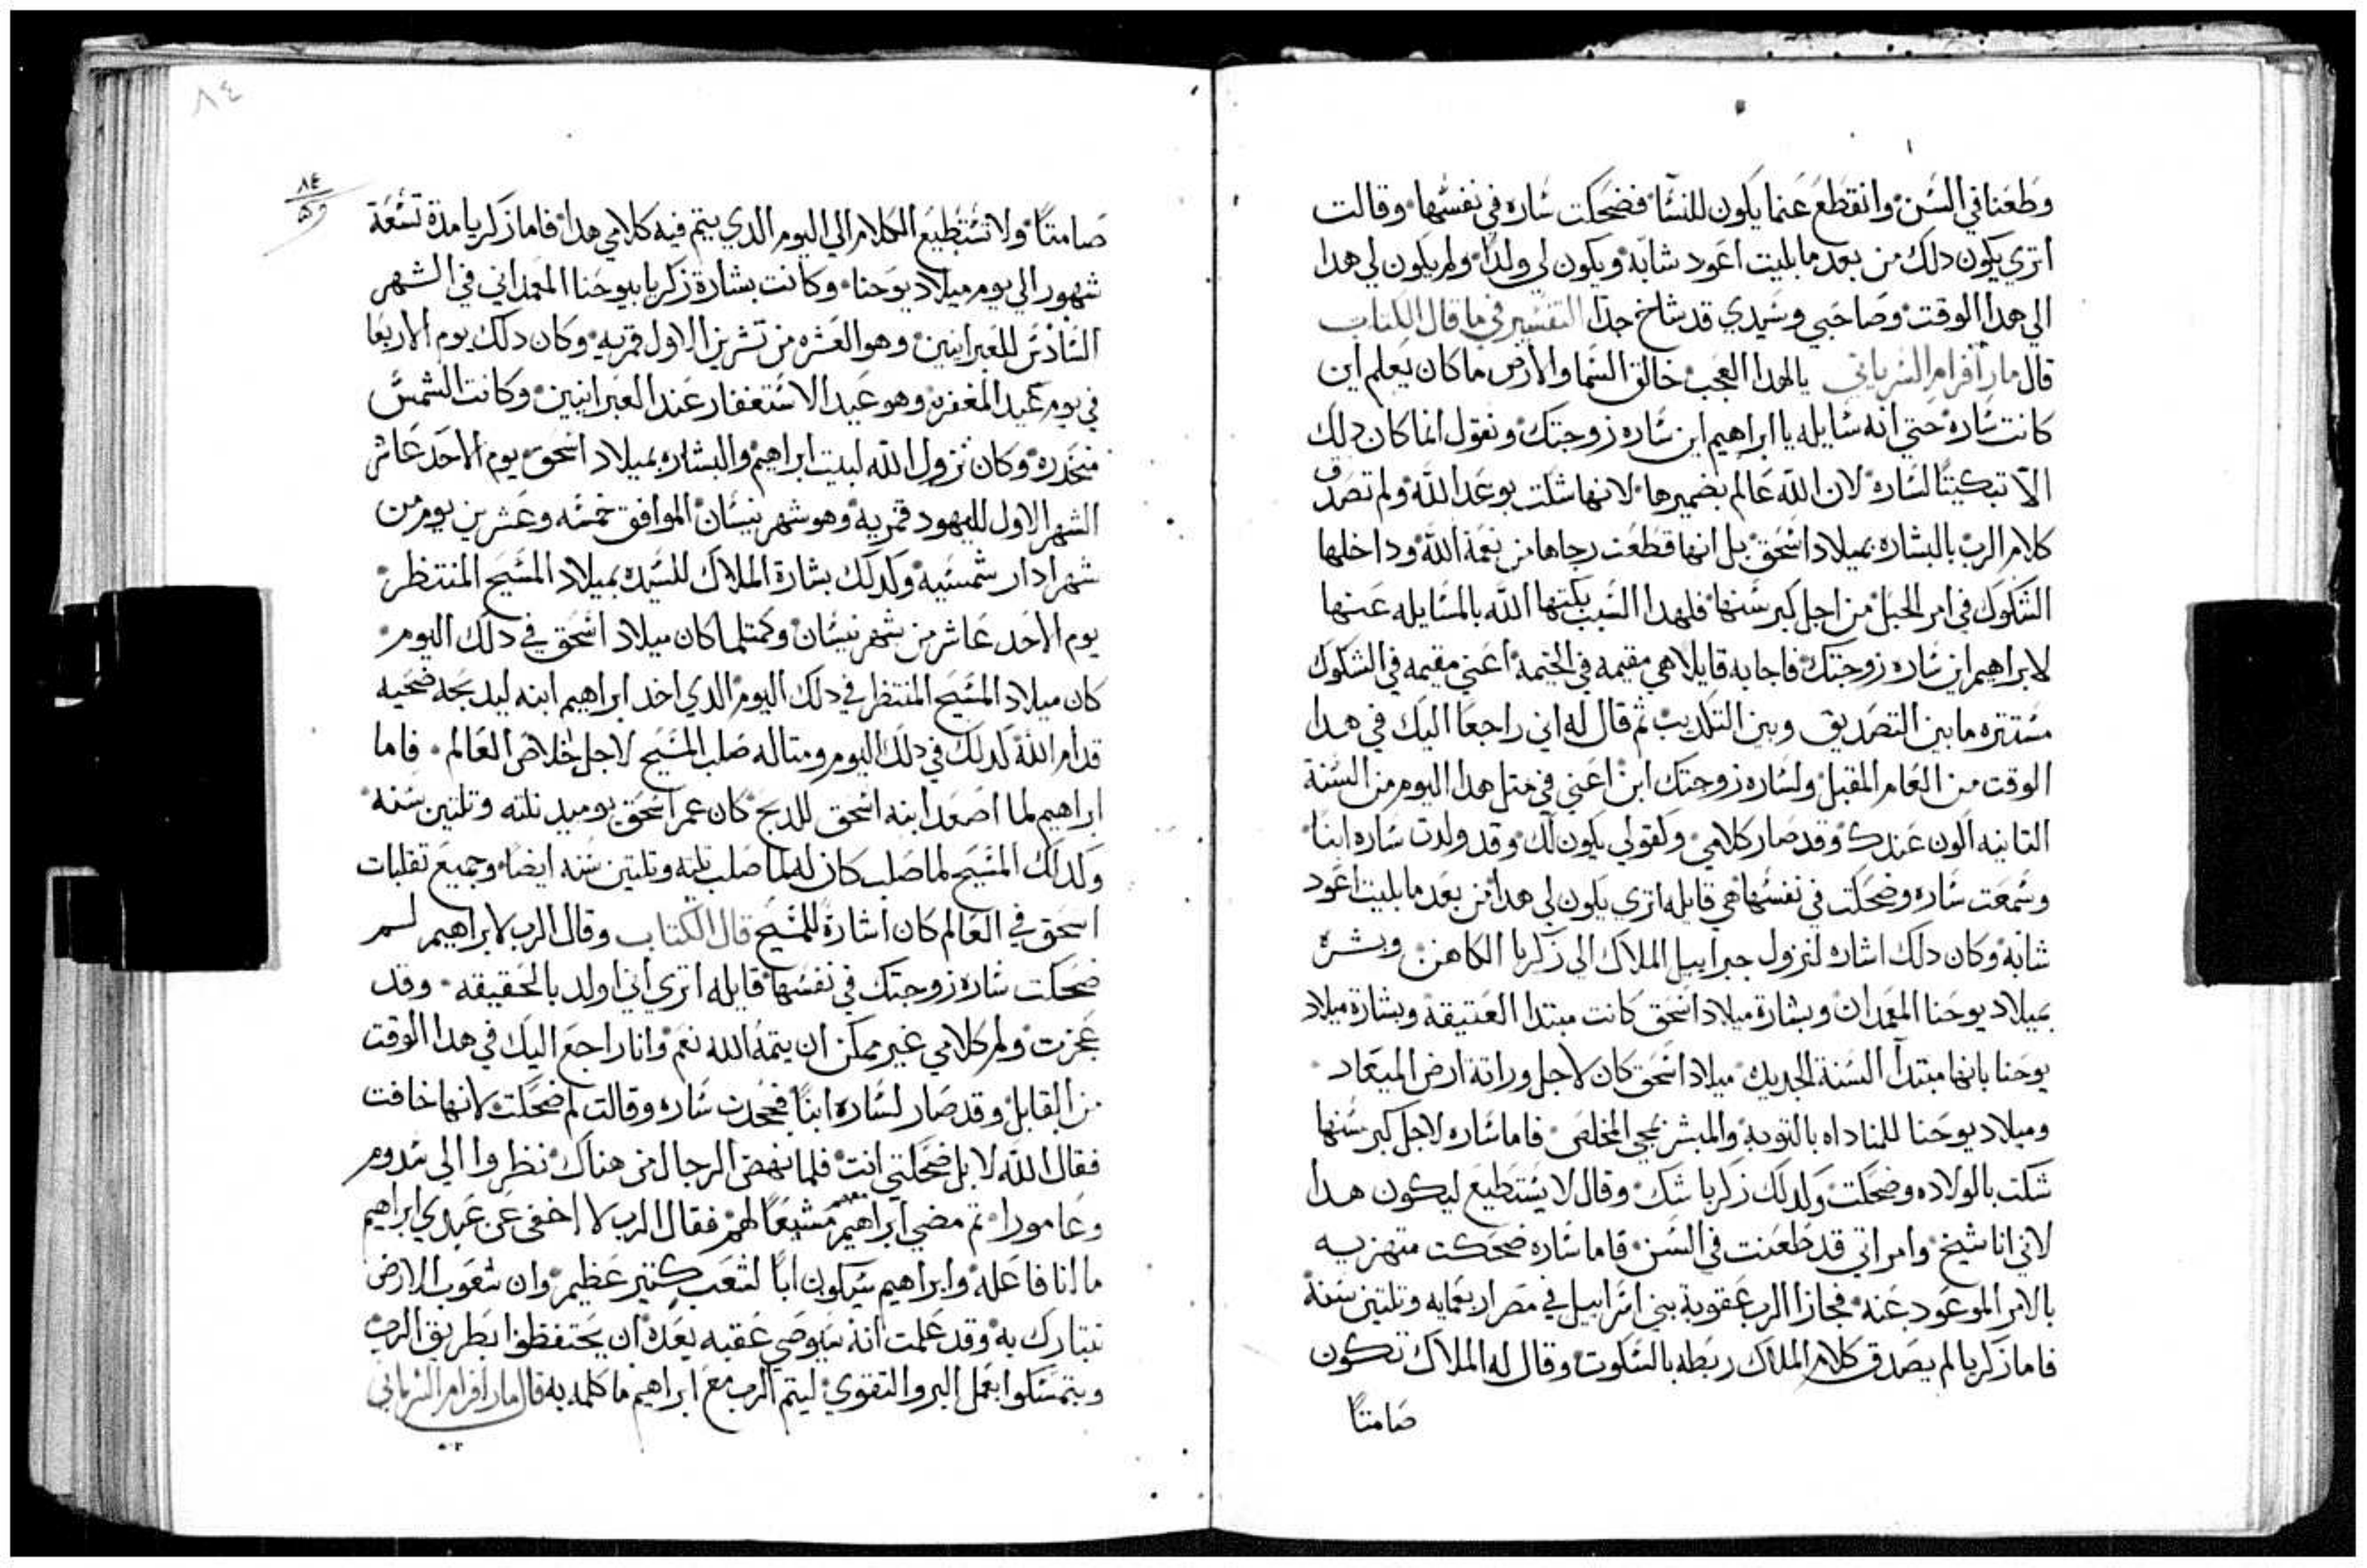 وطعنا في السن وانقطع عنما يكون للنسا فضحكت ساره في نفسها وقالت
اتري يكون دلك من بعد ما بليت اعود شابه ويكون لي ولدًا ولم يكون لي هدا
الي هدا الوقت وصاحبي وسيدي قد شاخ جدا التفسير في ما قال الكتاب
قال مار افرام السرياني يالهدا العجب خالق السما والارض ما كان يعلم اين
كانت ساره حتي انه سايله يا ابراهيم اين ساره زوجتك ونقول انما كان دلك
الا تبكيتًا لساره لان الله عالم بضميرها لانها شكت بوعد الله ولم تصدق
كلام الرب بالبشاره بميلاد اسحق بل انها قطعت رجاها من نعمة الله وداخلها
الشكوك في امر الحبل من اجل كبر سنها فلهدا السبب بكتها الله بالمسايله عنها
لابراهيم اين ساره زوجتك فاجابه قايلا هي مقيمه في الخيمه اعني مقيمه في الشكوك
مستتره ما بين التصديق وبين التكديب ثم قال له اني راجعا اليك في هدا
الوقت من العام المقبل ولساره زوجتك ابن اعني في متل هدا اليوم من السنة
التانيه اكون عندك وقد صار كلامي وكقولي يكون لك وقد ولدت ساره ابنا
وسمعت ساره وضحكت في نفسها هي قايله اتري يكون لي هدا من بعد ما بليت اعود
شابه وكان دلك اشاره لنزول جبراييل الملاك الي زكريا الكاهن وبشره
بميلاد يوحنا المعمدان وبشارة ميلاد اسحق كانت مبتدا العتيقه وبشارة ميلاد
يوحنا بانها مبتدأ السنة الجديده ميلاد اسحق كان لاجل وراتة ارض الميعاد
وميلاد يوحنا للمناداه بالتوبة والمبشر بمجي المخلص فاما ساره لاجل كبر سنها
شكت بالولاده وضحكت وكدلك زكريا شك وقال لا يستطيع ليكون هدا
لاني انا شيخ وامراتي قد طعنت في السن فاما ساره ضحكت متهزيه
بالامر الموعود عنه فجازا الرب عقوبة بني اسراييل في مصر اربعمايه وتلتين سنة
فاما زكريا لم يصدق كلام الملاك ربطه بالسكوت وقال له الملاك تكون
صامتًا
٨٤
٨٤
صامتًا ولا تستطيع الكلام الي اليوم الدي يتم فيه كلامي هدا فاما زكريا مدة تسعة
شهور الي يوم ميلاد يوحنا وكانت بشارة زكريا بيوحنا المعمداني في الشهر
السادس للعبرانيين وهو العشره من تشرين الاول قمريه وكان دلك يوم الاربعا
في يوم عيد المغفرة وهو عيد الاستغفار عند العبرانيين وكانت الشمس
منحدره وكان نزول الله لبيت ابراهيم والبشاره بميلاد اسحق يوم الاحد عاشر
الشهر الاول لليهود قمريه وهو شهر نيسان الموافق خمسه وعشرين يوم من
شهر ادار شمسيه وكدلك بشارة الملاك للسيده بميلاد المسيح المنتظر
يوم الاحد عاشر من شهر نيسان وكمتلما كان ميلاد اسحق في دلك اليوم
كان ميلاد المسيح المنتظر في دلك اليوم الدي اخد ابراهيم ابنه ليدبحه ضحيه
قدام الله كدلك في دلك اليوم ومتاله صلب المسيح لاجل خلاص العالم فاما
ابراهيم لما اصعد ابنه اسحق للدبح كان عمر اسحق يوميد تلته وتلتين سنه
وكدلك المسيح لما صلب كان له لما صلب تلته وتلتين سنه ايضًا وجميع تقلبات
اسحق في العالم كان اشارةً للمسيح قال الكتاب وقال الرب لابراهيم لم
ضحكت ساره زوجتك في نفسها قايله اتري اني اولد بالحقيقه وقد
عجزت ولم كلامي غير ممكن ان يتمه الله نعم وانا راجع اليك في هدا الوقت
من القابل وقد صار لساره ابنًا فجحدت ساره وقالت لم ضحكت لانها خافت
فقال الله لا بل ضحكتي انت فلما نهض الرجال من هناك نظروا الي سدوم
وعامورا تم مضي ابراهيم معهم مشيعًا لهم فقال الرب لا اخفي عن عبدي ابراهيم
ما انا فاعله وابراهيم سيكون ابًا لشعب كتير عظيم وان شعوب الارض
تتبارك به وقد علمت انه سيوصي عقبه بعده ان يحتفظوا بطريق الرب
ويتمسكوا بعمل البر والتقوي ليتم الرب مع ابراهيم ما كلمه به قال مار افرام السرياني